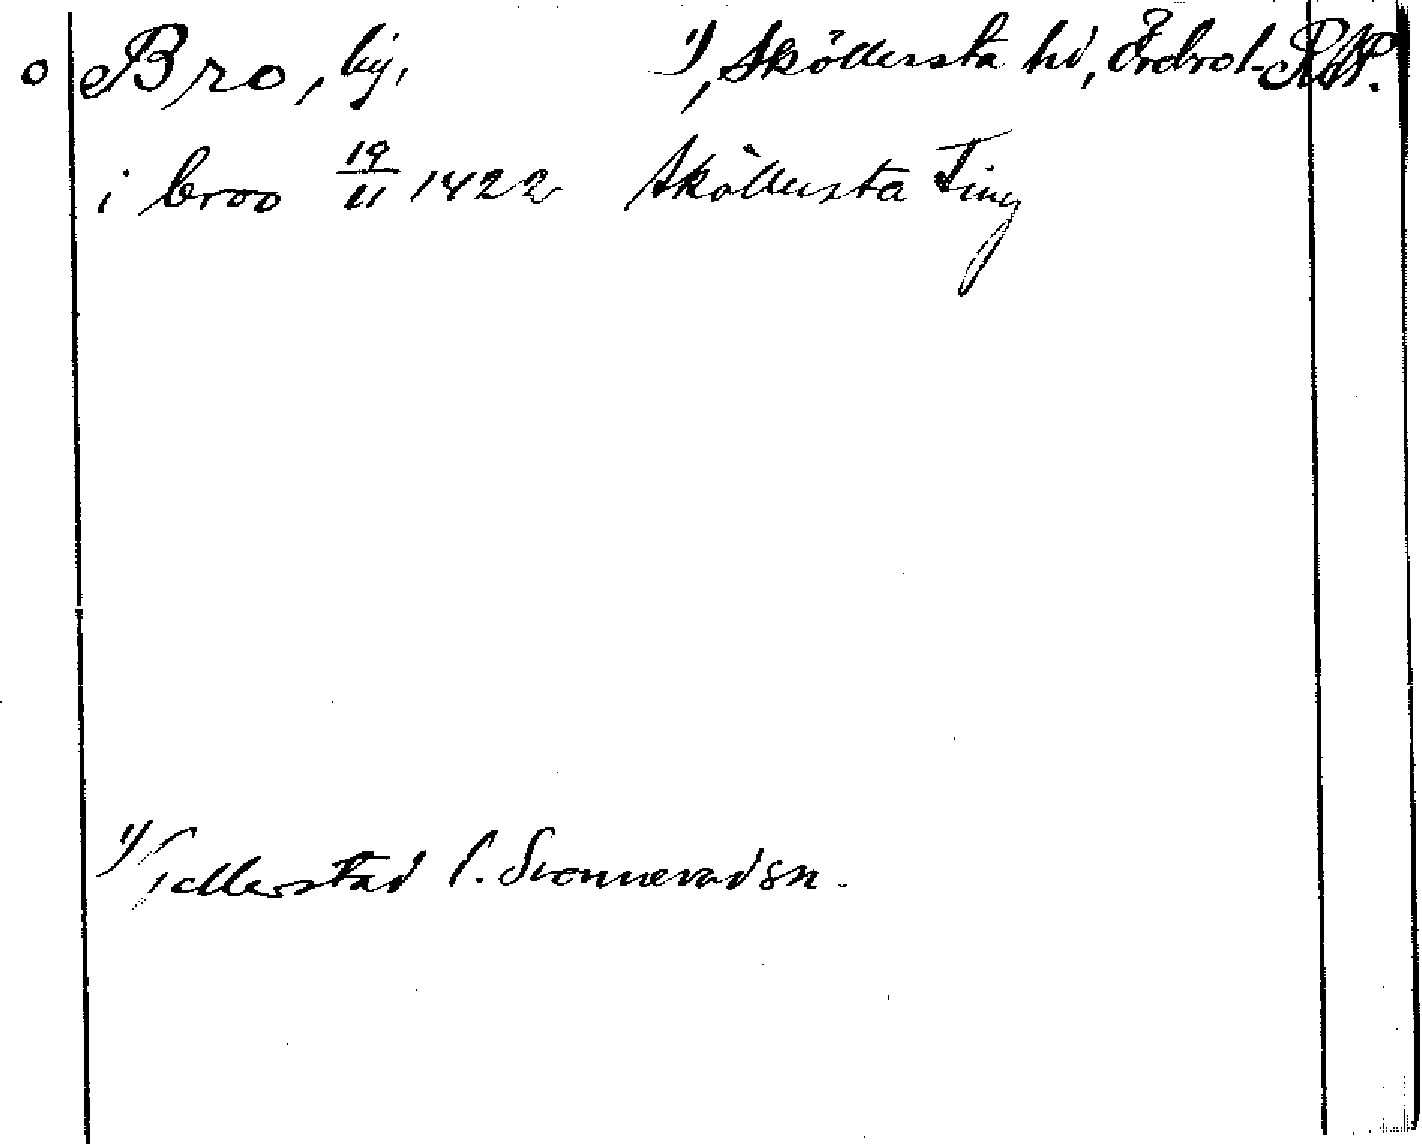 o Bro, by, 1), Sköllersta hd, Örebro l. RAP.
i broo 19/11 1422 Sköllersta Ting
1) ellerstad l. Svennevad sn.